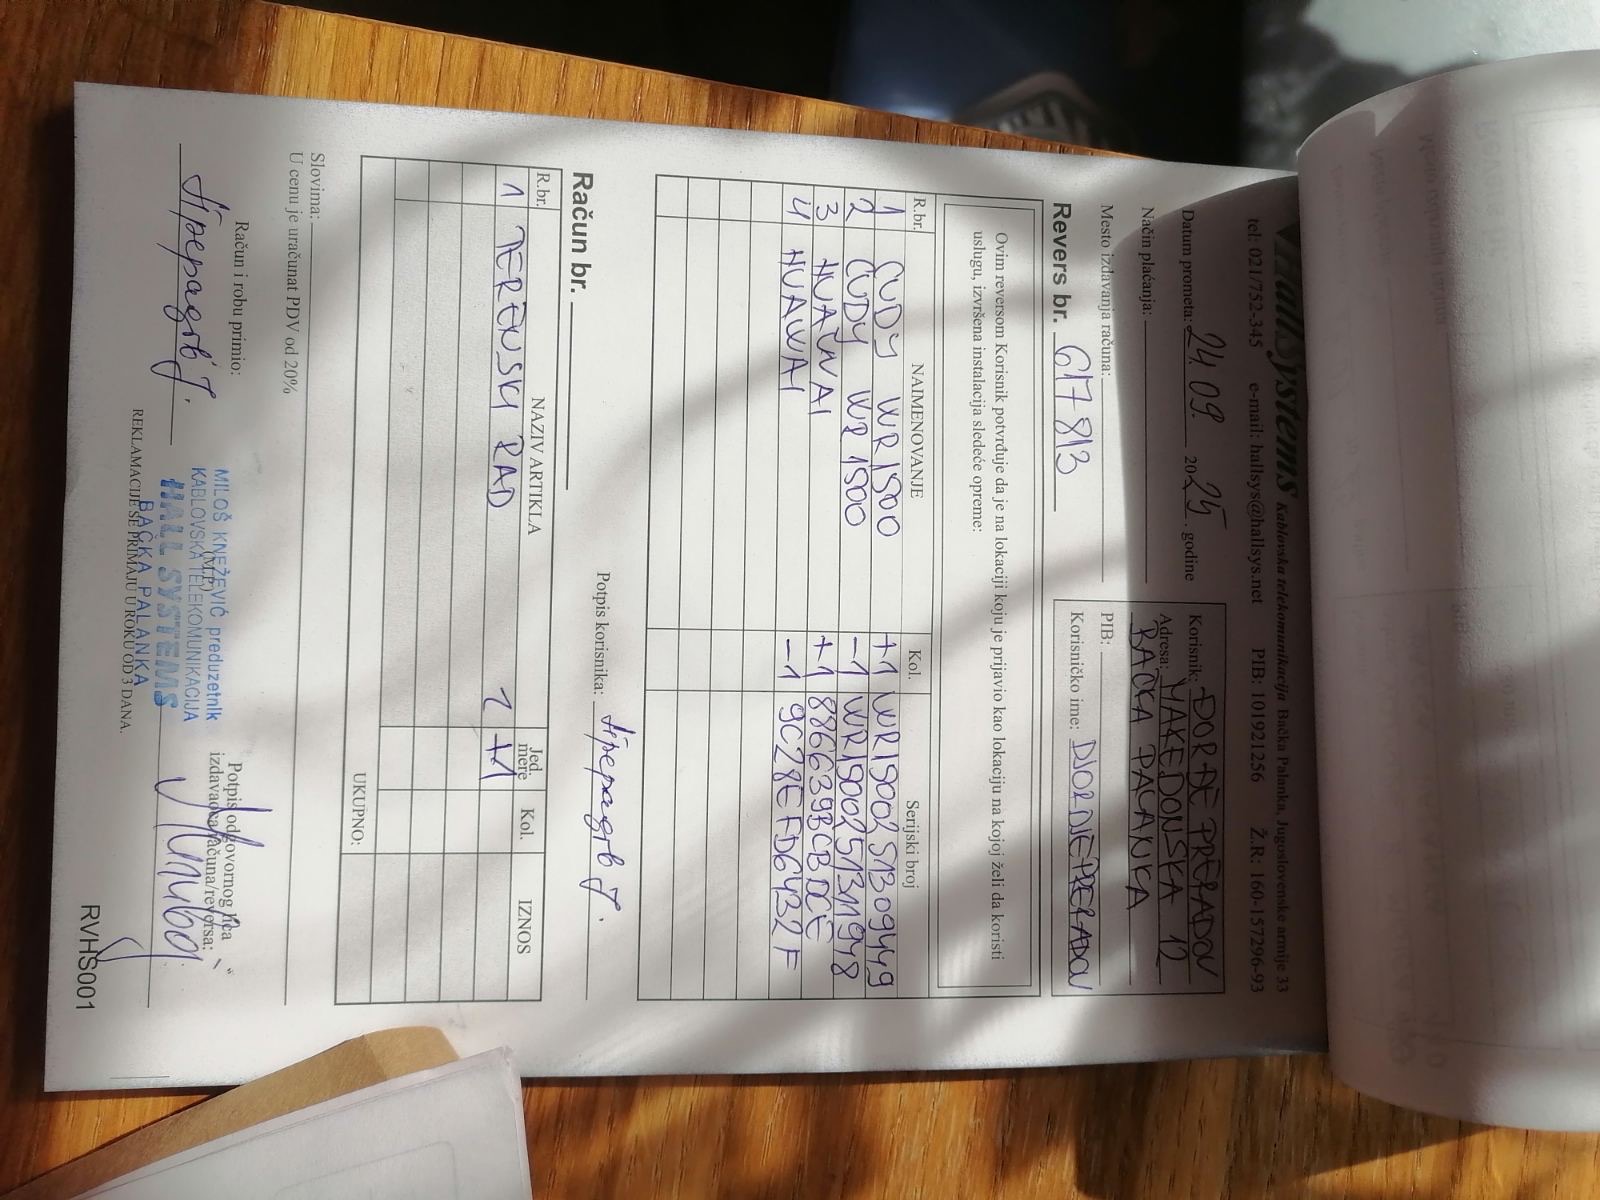 HallSystems Kablovska telekomunikacija Bačka Palanka, Jugoslovenske armije 33
tel: 021/752-345 e-mail: hallsys@hallsys.net PIB: 101921256 Ž.R: 160-157296-93
Datum prometa: 24.09. 2025. godine
Način plaćanja:
Mesto izdavanja računa:
Korisnik: ĐORĐE PRERADOV
Adresa: MAKEDONSKA 12
BAČKA PALANKA
PIB:
Korisničko ime: DJORDJEPRERADOV
Revers br. 617813
Ovim reversom Korisnik potvrđuje da je na lokaciji koju je prijavio kao lokaciju na kojoj želi da koristi
uslugu, izvršena instalacija sledeće opreme:
R.br. NAIMENOVANJE Kol. Serijski broj
1 CUDY WR1500 +1 WR1500251309449
2 CUDY WR1500 -1 WR1500251311948
3 HUAWAI +1 886639BCBDCE
4 HUAWAI -1 9C28EFD6432F
Potpis korisnika: Прерадов Ј.
Račun br.
R.br. NAZIV ARTIKLA Jed. mere Kol. IZNOS
1 TERENSKI RAD +1
UKUPNO:
Slovima:
U cenu je uračunat PDV od 20%
Račun i robu primio:
Прерадов Ј.
(M.P.)
MILOŠ KNEŽEVIĆ preduzetnik
KABLOVSKA TELEKOMUNIKACIJA
HALL SYSTEMS
BAČKA PALANKA
Potpis odgovornog lica
izdavaoca računa/reversa:
REKLAMACIJE SE PRIMAJU U ROKU OD 3 DANA.
RVHS001